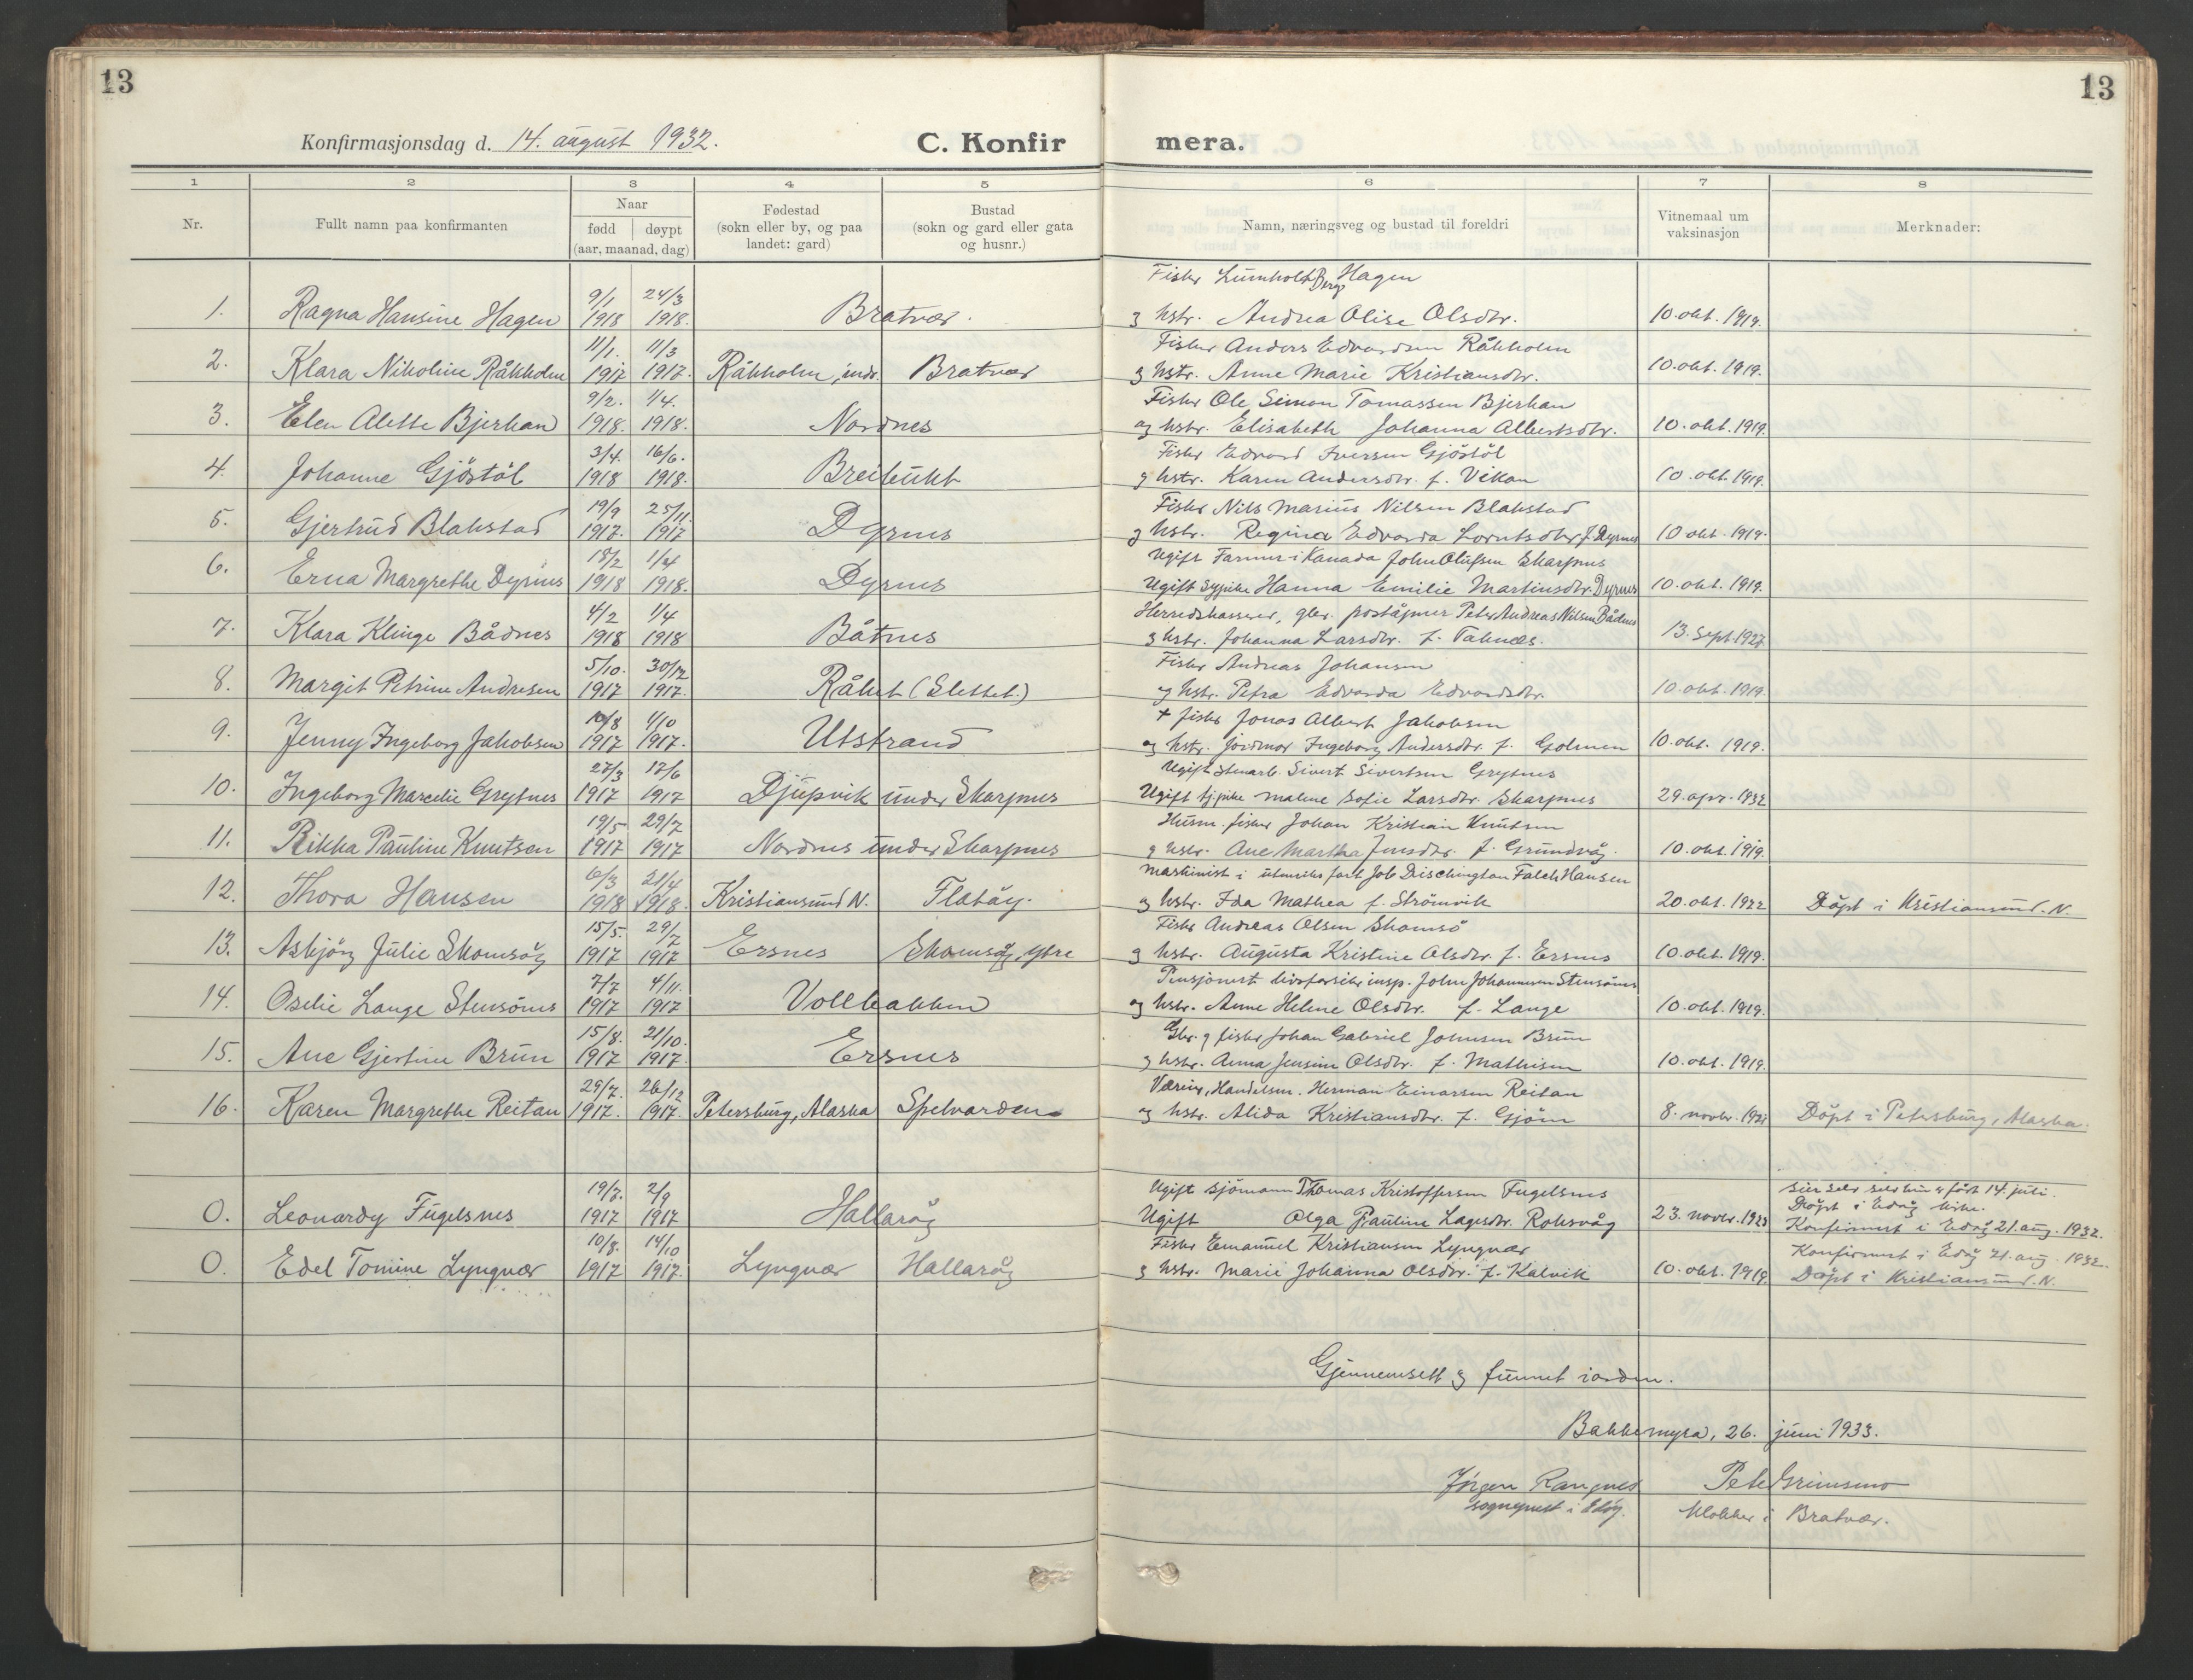 13
13
Konfirmasjonsdag d. 14. august 1932.
C. Konfir mera.
1 2 3 4 5 6 7 8
Nr.
Fullt namn paa konfirmanten
Naar
fødd døypt
(aar, maanad, dag)
Fødestad
(sokn eller by, og paa
landet: gard)
Bustad
(sokn og gard eller gata
og husnr.)
Namn, næringsveg og bustad til foreldri
Vitnemaal um
vaksinasjon
Merknader:
9/1 24/3 Fisker Lumholdt Berg Hagen
1. Ragna Hansine Hagen 1918 1918. Bratvær. g hstr. Andrea Olise Olsdtr. 10. okt. 1919.
11/1. 11/3 Fisker Anders Edvardsen Råkholm
2. Klara Nikoline Råkholm 1917 1917. Råkholm, indr. Bratvær g hstr. Anne Marie Kristiansdtr. 10. okt. 1919.
9/2. 1/4. Fisker Ole Simon Tomassen Bjerkan
3. Elen Alette Bjerkan 1918. 1918. Nordnes og hstr. Elisabeth Johanna Albertsdtr. 10. okt. 1919.
3/4. 16/6. Fisker Edvard Iversen Gjöstöl
4. Johanne Gjöstöl 1918 1918. Breibukt g hstr. Karen Andersdtr. f. Vikan 10. okt. 1919.
19/9 25/11. Fisker Nils Marius Nilsen Blakstad
5. Gjertrud Blakstad 1917. 1917 Dyrnes g hstr. Regina Edvarda Lorntsdtr f. Dyrnes 10 okt. 1919.
18/2 1/4 Ugift Farmer i Kanada John Olufsen Skarpnes
6. Erna Margrethe Dyrnes 1918 1918. Dyrnes Ugift sypike Hanna Emilie Martinsdtr. Dyrnes 10. okt. 1919.
4/2 1/4 Herredskasserer, gbr. poståpner Peter Andreas Nilsen Bådnes
7. Klara Klinge Bådnes 1918 1918 Båtnes g hstr. Johanna Larsdtr. f. Taknes. 13. Sept. 1927
5/10. 30/12 Fisker Andreas Johansen
8. Margit Petrine Andresen 1917 1917. Råket (Slettet.) og hstr. Petra Edvarda Edvardsdtr. 10. okt. 1919.
10/8 1/10 + fisker Jonas Albert Jakobsen
9. Jenny Ingeborg Jakobsen 1917 1917. Utstrand og hstr. jordmor Ingeborg Andersdtr. f. Golmen 10. okt. 1919.
27/3 17/6 Ugift stenarb. Sivert Sivertsen Grytnes
10. Ingeborg Marcelie Grytnes 1917 1917 Djupvik under Skarpnes Ugift tj.pike Malene Sofie Larsdtr. Skarpnes 29. apr. 1932
19/5 29/7 Husm. fisker Johan Kristian Knutsen
11. Rikka Pauline Knutsen 1917 1917 Nordnes under Skarpnes g hstr. Ane Martha Jensdtr. f. Grundvåg. 10. okt. 1919.
6/3 21/4 Maskinist i utenriks fart Job Dischington Falch Hansen
12. Thora Hansen 1918 1918. Kristiansund N. Flatöy. og hstr. Ida Mathea f. Strömvik 20. okt. 1922 Döpt i Kristiansund. N.
15/5. 29/7 Fisker Andreas Olsen Skomsö
13. Asbjörg Julie Skomsöy 1917 1917 Ersnes Skomsöy, ytre g hstr. Augusta Kristine Olsdtr. f. Ersnes 10. okt. 1919.
7/7 4/11. Pensjonert livsforsikr. insp. John Johannesen Stensönes
14. Oselie Lange Stensönes 1917 1917 Vollbakken og hstr. Anne Helene Olsdtr. f. Lange 10. okt. 1919.
15/8. 21/10. Gbr. g fisker Johan Gabriel Johnsen Brun
15. Ane Gjertine Brun 1917 1917. Ersnes g hstr. Anna Jensine Olsdtr. f. Mathisen 10. okt. 1919.
29/7. 26/12 Væreier, Handelsm. Herman Einarsen Reitan
16. Karen Margrethe Reitan 1917. 1917. Petersburg, Alaska Spelvarden og hstr. Alida Kristiansdtr. f. Gjöm 8. novbr. 1921 Döpt i Petersburg, Alaska.
19/7. 2/9 Ugift sjömann Thomas Kristoffersen Fugelsnes sier selv hun er född 14. juli.
O. Leonardy Fugelsnes 1917 1917 Hallaröy Ugift Olga Pauline Lagesdtr. Roksvåg 23. novbr. 1923 Döpt i Edöy kirke.
Konfirmert i Edöy 21. aug. 1932.
10/8. 14/10 Fisker Emanuel Kristiansen Lyngvær Konfirmert i Edöy 21. aug. 1932.
O. Edel Tomine Lyngvær 1917 1917. Lyngvær Hallaröy g hstr. Marie Johanna Olsdtr. f. Kalvik 10. okt. 1919. Döpt i Kristiansund. N.
Gjennemsett g funnet i orden.
Bakkemyra, 26. juni 1933.
Jörgen Rangnes Peter Grimsmo
sogneprest i Edöy. klokker i Bratvær.